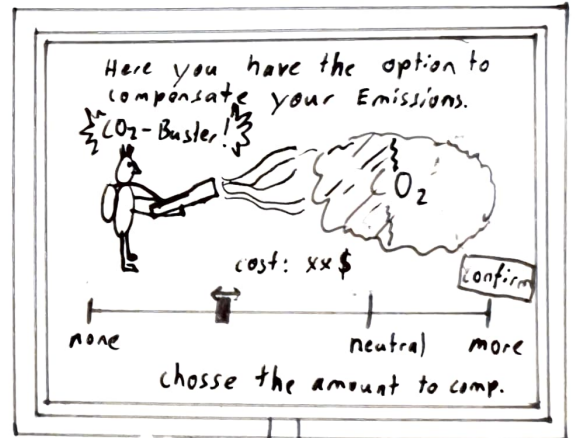 Here you have the option to
compensate your Emissions.
CO2-Buster!
O2
cost: xx$
confirm
none
neutral
more
chosse the amount to comp.